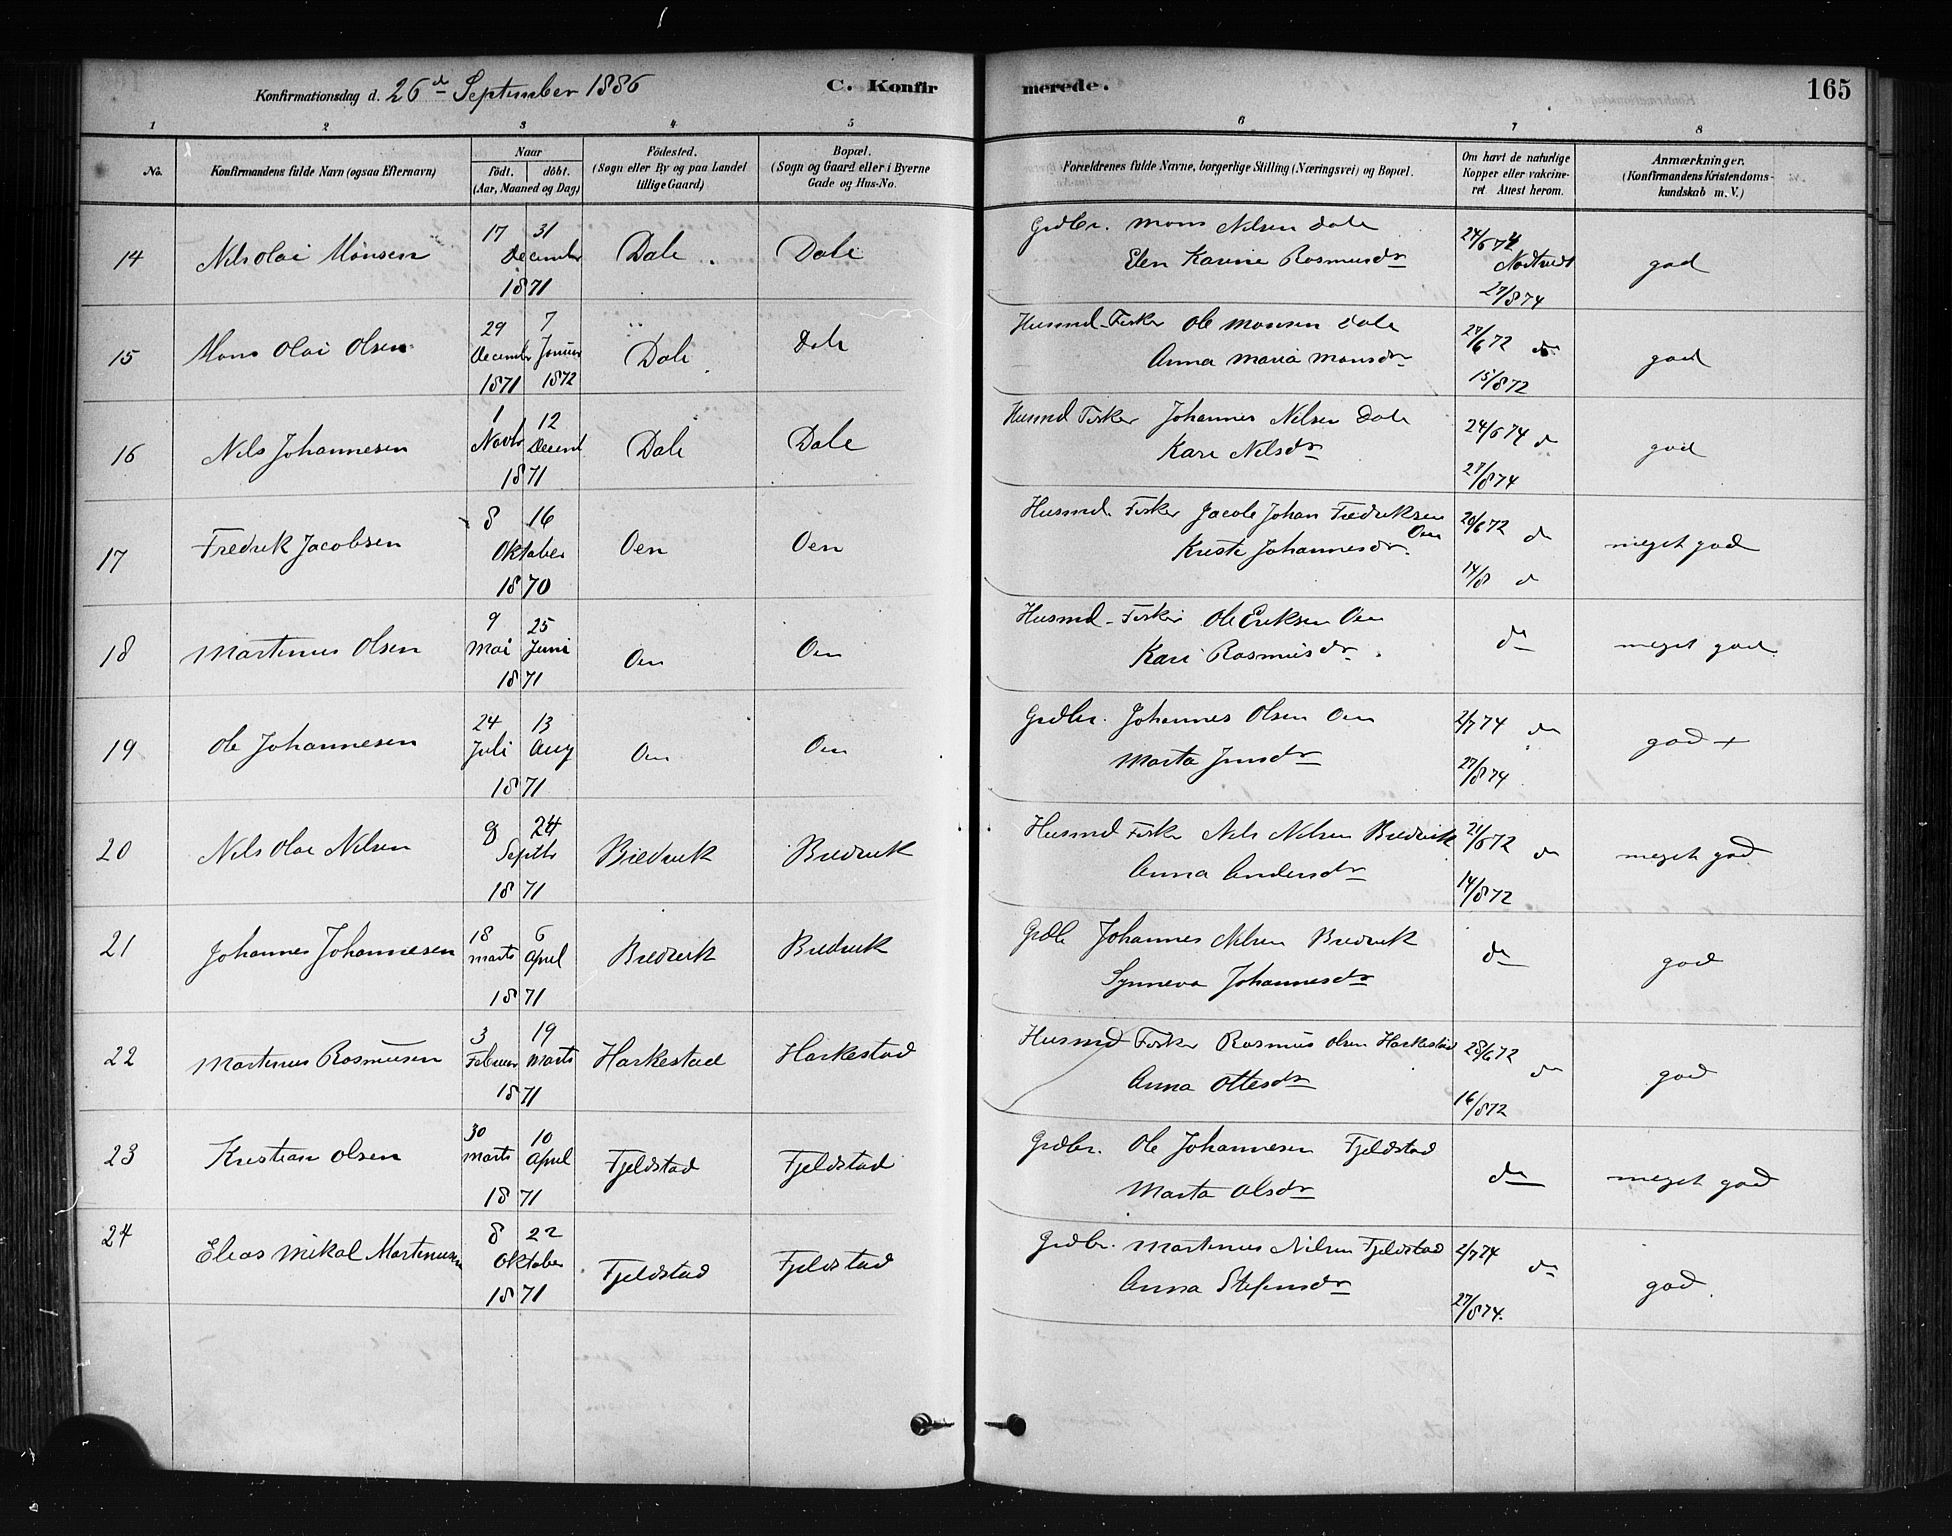 Konfirmationsdag d. 26de September 1886
C. Konfirmerede.
165
1 2 3 4 5 6 7 8
No.
Konfirmandens fulde Navn (ogsaa Efternavn)
Naar
födt. döbt.
(Aar, Maaned og Dag)
Födested.
(Sogn eller By og paa Landet
tillige Gaard)
Bopæl.
(Sogn og Gaard eller i Byerne
Gade og Hus-No.
Forældrenes fulde Navne, borgerlige Stilling (Næringsvei) og Bopæl.
Om havt de naturlige
Kopper eller vakcine-
ret Attest herom.
Anmærkninger.
(Konfirmandens Kristendoms-
kundskab m. V.)
14 Nils Olai Monsen 17 31 December 1871 Dale Dale
Grdbr. Mons Nilsen Dale
Elen Karine Rasmusdr
27/8 74
god
15 Mons Olai Olsen 29 December 1871 7 Januar 1872 Dale Dale
Husmd. Fisker Ole Monsen Dale
Anna Maria Monsdr
27/6 72 do
15/8 72
god
16 Nils Johannesen 1 Novbr 12 Decemb 1871 Dale Dale
Husmd Fisker Johannes Nilsen Dale
Kari Nilsdr
24/6 74 do
27/8 74
god
17 Fredrik Jacobsen 8 16 Oktober 1870 Oen Oen
Husmd. Fisker Jacob Johan Fredriksen Oen
Kirste Johannesdr.
28/6 72 do
14/8 do
meget god
18 Martinus Olsen 9 Mai 25 Juni 1871 Oen Oen
Husmd. Fisker Ole Eriksen Oen
Kari Rasmusdr.
do
meget god.
19 Ole Johannesen 24 Juli 13 Aug 1871 Oen Oen
Grdbr. Johannes Olsen Oen
Marta Jensdr
2/7 74 do
27/8 74
god +
20 Nils Olai Nilsen 8 24 Septbr 1871 Bredvik Bredvik
Husmd Fisker Nils Nilsen Bredvik
Anna Andersdr
21/6 72 do
14/8 72
meget god
21 Johannes Johannesen 18 Marts 6 April 1871 Bredvik Bredvik
Grdb Johannes Nilsen Bredvik
Synneva Johannesdr
do
god
22 Martinus Rasmusen 3 Februar 19 Marts 1871 Harkestad Harkestad
Husmd Fisker Rasmus Olsen Harkestad
Anna Ottesdr
28/6 72 do
16/8 72
god
23 Kristian Olsen 30 Marts 10 April 1871 Fjeldstad Fjeldstad
Grdbr. Ole Johannesen Fjeldstad
Marta Olsdr
do
meget god
24 Elias Mikal Martinusen 8 22 Oktober 1871 Fjeldstad Fjeldstad
Grdbr. Martinus Nilsen Fjeldstad
Anna Stefensdr
2/7 74 do
27/8 74.
god.